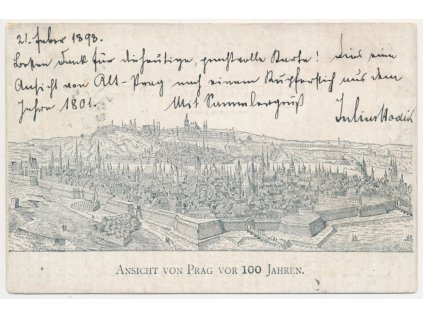 21. Feber 1898.
Besten Dank für die heutige, prachtvolle Karte! Hier eine
Ansicht von Alt-Prag nach einem Kupferstich aus dem
Jahre 1801. Mit Sammlergruß Julius
ANSICHT VON PRAG VOR 100 JAHREN.